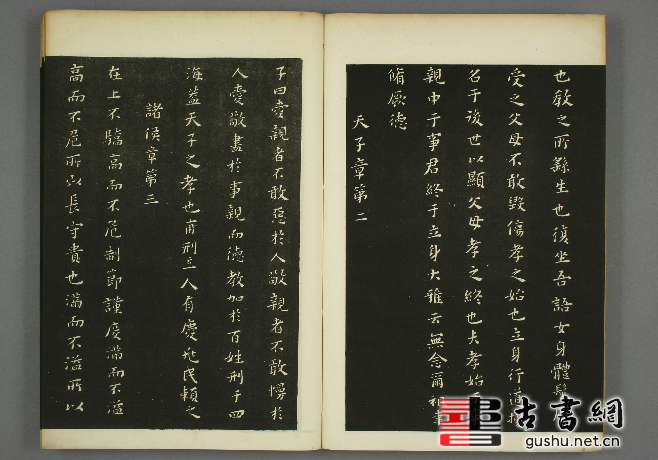 也教之所繇生也復坐吾語女身體
受之父母不敢毀傷孝之始也立身行道
名于後世以顯父母孝之終也夫孝始
親中于事君終于立身大雅云無念爾祖
脩厥德
天子章第二
子曰愛親者不敢惡於人敬親者不敢慢於
人愛敬盡於事親而德教加於百姓刑于四
海蓋天子之孝也甫刑云一人有慶兆民賴之
諸侯章第三
在上不驕高而不危制節謹度滿而不溢
高而不危所以長守貴也滿而不溢所以
古書網
gushu.net.cn